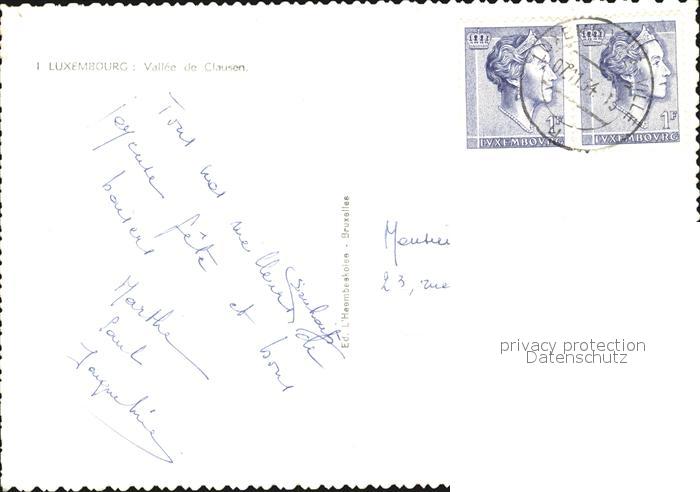 1 LUXEMBOURG : Vallée de Clausen.
Tous mes meilleurs souhaits de
joyeuse fête et bons
baisers
Marthe
Paul
Jacqueline
Ed. L'Haembeekoise - Bruxelles
1F
LVXEMBOVRG
1F
LVXEMBOVRG
Monsieu
23, rue
privacy protection
Datenschutz